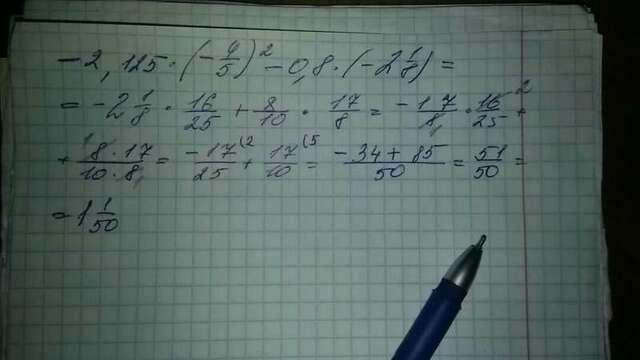 -2,125·(-4/5)²-0,8·(-2 1/8)=
=-2 1/8·16/25+8/10·17/8=-17/8·16/25+
+8·17/10·8=-17/25+17/10=-34+85/50=51/50=
=1 1/50